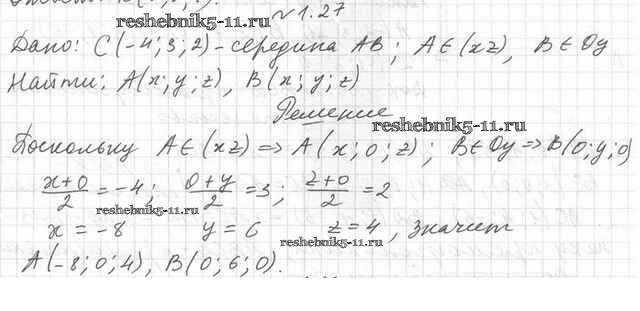 reshebnik5-11.ru
№ 1.27
Дано: C(-4; 3; 2) - середина AB; A∈(xz), B∈Oy
Найти: A(x; y; z), B(x; y; z)
Решение
reshebnik5-11.ru
Поскольку A∈(xz) => A(x; 0; z); B∈Oy => B(0; y; 0)
(x+0)/2 = -4; (0+y)/2 = 3; (z+0)/2 = 2
reshebnik5-11.ru
x = -8 y = 6 z = 4, значит
reshebnik5-11.ru
A(-8; 0; 4), B(0; 6; 0).